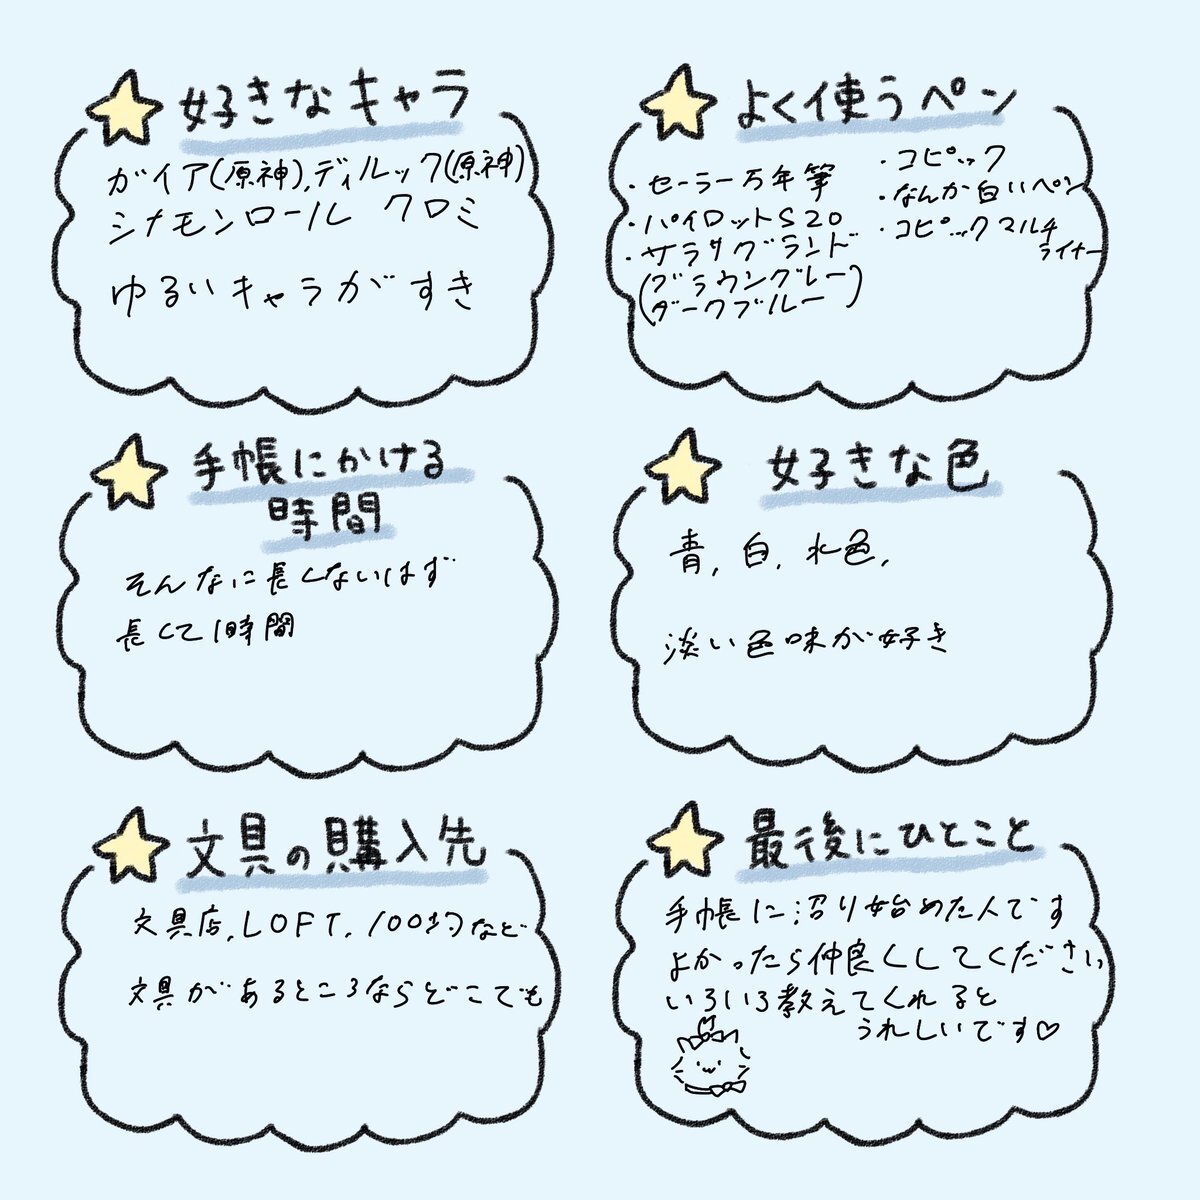 好きなキャラ
ガイア(原神),ディルック(原神)
シナモンロール クロミ
ゆるいキャラがすき
よく使うペン
・セーラー万年筆
・パイロットS20
・サラサグランド
(ブラウングレー)
(ダークブルー)
・コピック
・なんか白いペン
・コピックマルチ
ライナー
手帳にかける
時間
そんなに長くないはず
長くて1時間
好きな色
青,白,水色,
淡い色味が好き
文具の購入先
文具店,LOFT,100均など
文具があるところならどこでも
最後にひとこと
手帳に沼り始めた人です
よかったら仲良くしてください
いろいろ教えてくれると
うれしいです♡